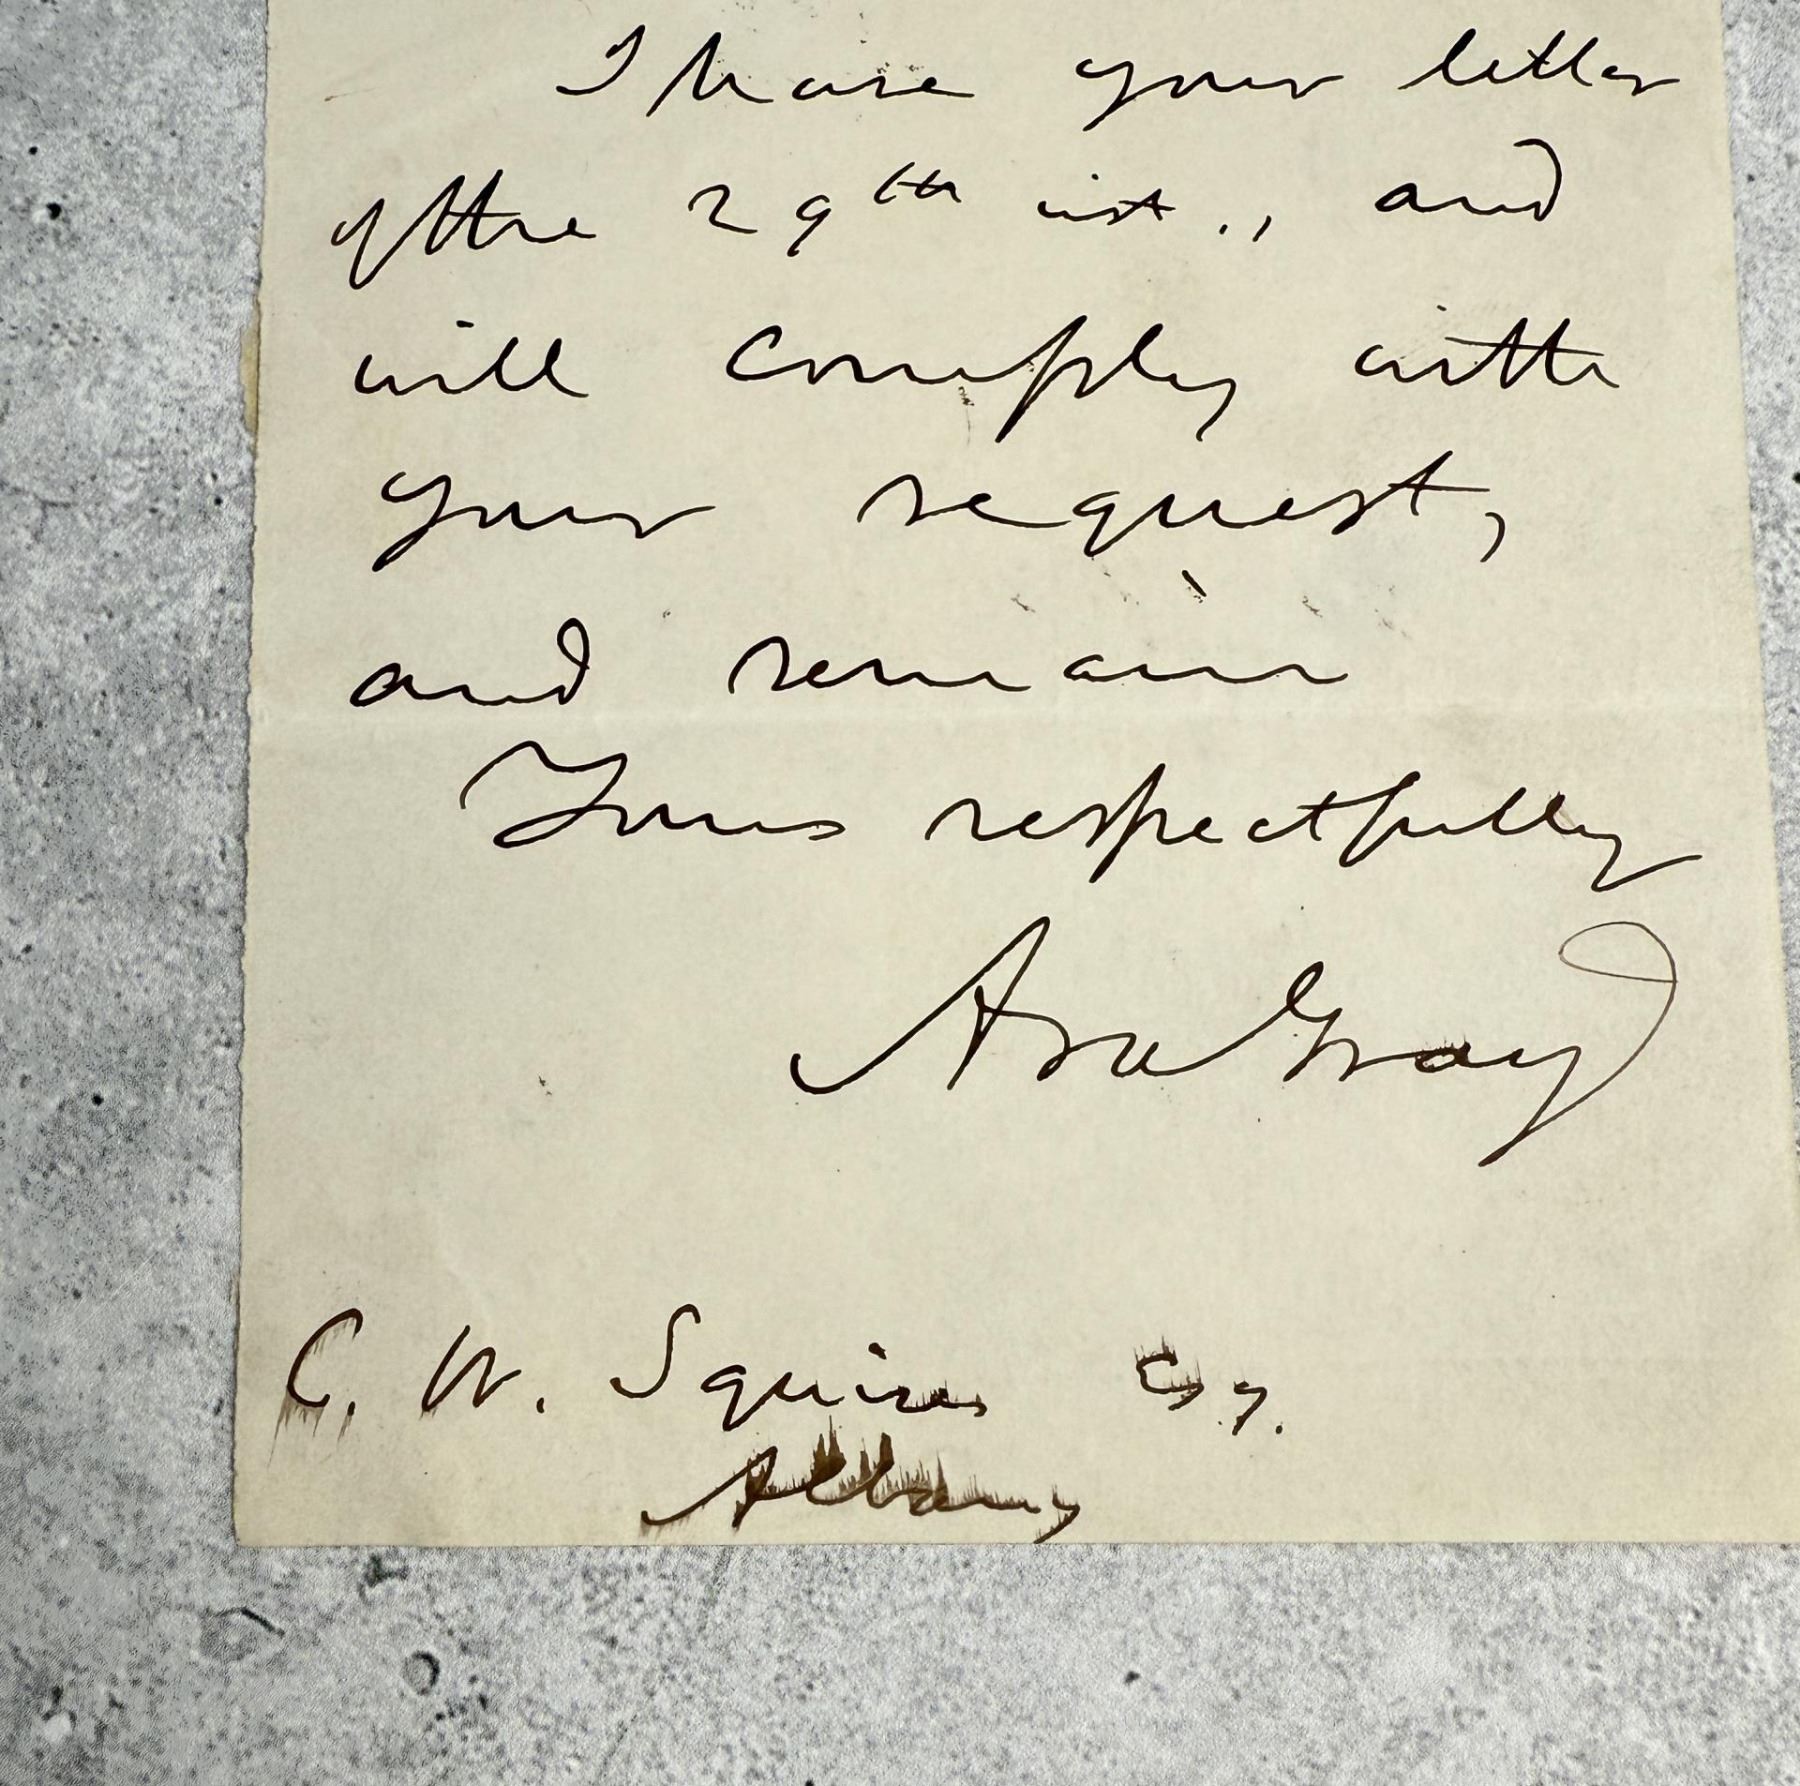 I have your letter
of the 29th inst., and
will comply with
your request,
and remain
Yours respectfully
Asa Gray
C. W. Squires Esq.
Albany